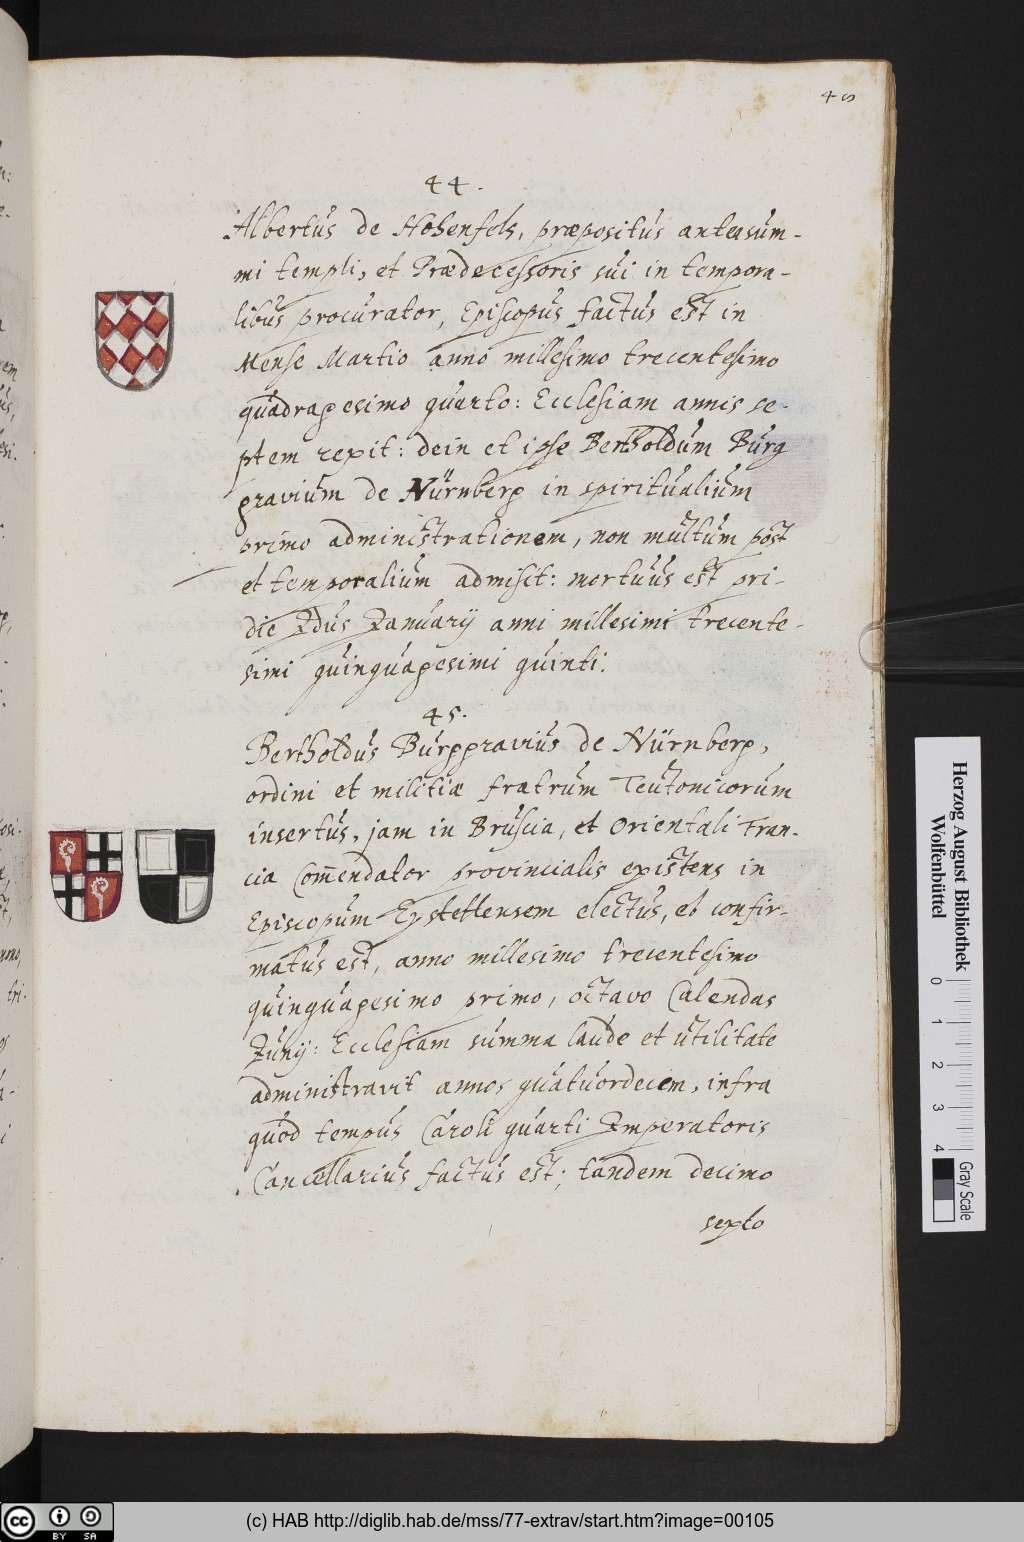 48
44.
Albertus de Hohenfels, præpositus ante sum-
mi templi, et Prædecessoris sui in tempora-
libus procurator, Episcopus factus est in
Mense Martio anno millesimo trecentesimo
quadragesimo quarto: Ecclesiam annis se-
ptem rexit: dein et ipse Bertholdum Burg
gravium de Nürnberg in spiritualium
primo administrationem, non multum post
et temporalium admisit: mortuus est pri-
die Idus Januarij anni millesimi trecente-
simi quinquagesimi quinti.
45.
Bertholdus Burggravius de Nürnberg,
ordini et militiæ fratrum Teutonicorum
insertus, jam in Bruscia, et Orientali Fran-
cia Com̄endator provincialis existens in
Episcopum Eystettensem electus, et confir-
matus est, anno millesimo trecentesimo
quinquagesimo primo, octavo Calendas
Junij: Ecclesiam summa laude et utilitate
administravit annos quatuordecem, infra
quod tempus Caroli quarti Imperatoris
Cancellarius factus est; tandem decimo
sexto
Herzog August Bibliothek
Wolfenbüttel
0 1 2 3 4
Gray Scale
cc BY SA
(c) HAB http://diglib.hab.de/mss/77-extrav/start.htm?image=00105